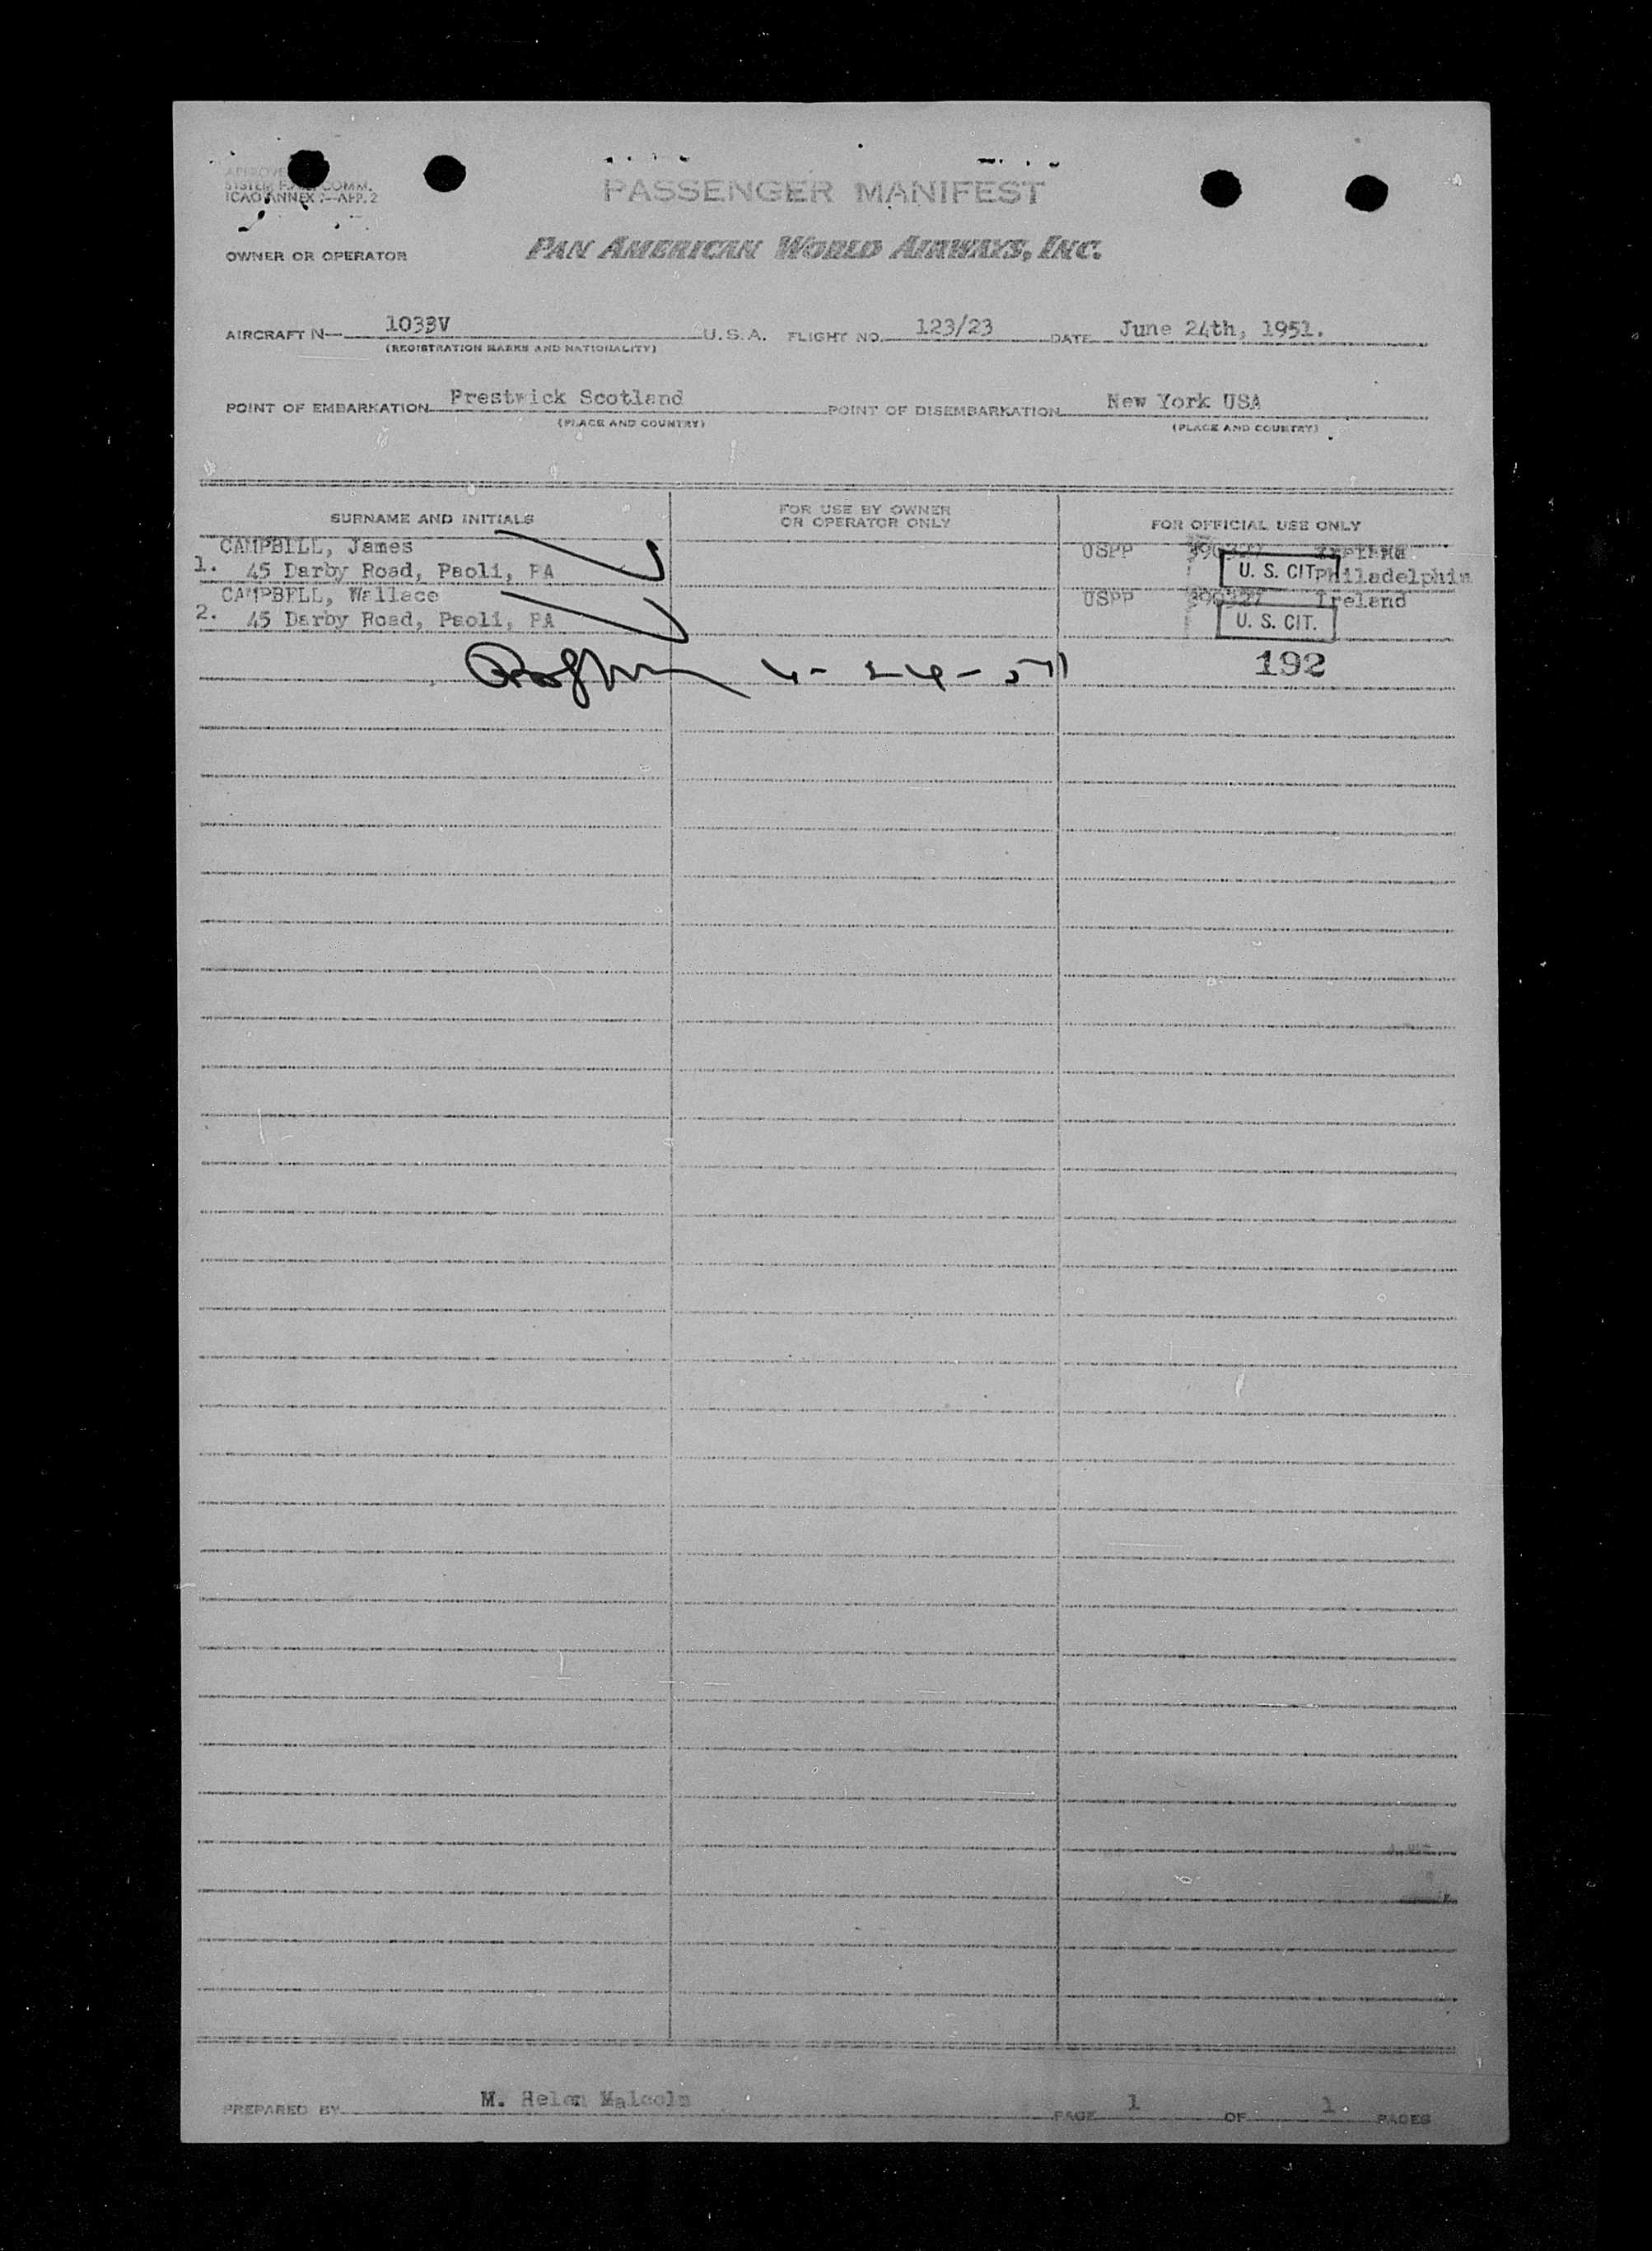 PASSENGER MANIFEST
SYSTEM COMM.
ICAO ANNEX 9—APP. 2
OWNER OR OPERATOR PAN AMERICAN WORLD AIRWAYS, INC.
AIRCRAFT N— 1033V U. S. A. FLIGHT NO. 123/23 DATE June 24th, 1951.
(REGISTRATION MARKS AND NATIONALITY)
POINT OF EMBARKATION Prestwick Scotland POINT OF DISEMBARKATION New York USA
(PLACE AND COUNTRY) (PLACE AND COUNTRY)
SURNAME AND INITIALS FOR USE BY OWNER OR OPERATOR ONLY FOR OFFICIAL USE ONLY
CAMPBELL, James USPP
1. 45 Darby Road, Paoli, PA U. S. CIT. Philadelphia
CAMPBELL, Wallace USPP 390327 Ireland
2. 45 Darby Road, Paoli, PA U. S. CIT.
6-24-51 192
PREPARED BY M. Helen Malcolm PAGE 1 OF 1 PAGES